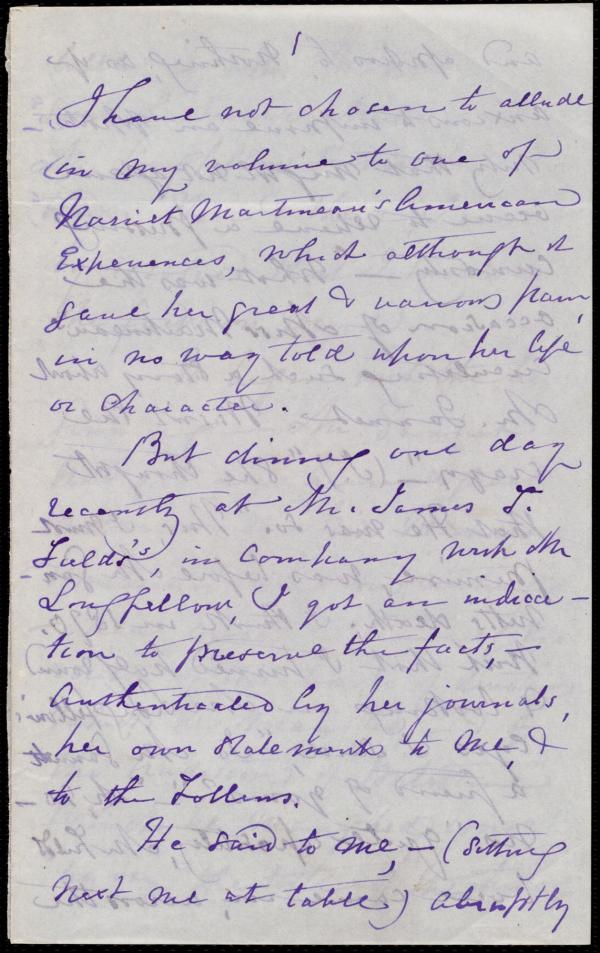 1
I have not chosen to allude
in my volume to one of
Harriet Martineau's American
Experiences, which although it
gave her great & various pain,
in no way told upon her life
or character.
But dining one day
recently at Mr. James T.
Fields's, in company with Mr
Longfellow, I got an indica-
tion to preserve the facts—
authenticated by her journals,
her own statements to me, &
to the Follens.
He said to me,—(sitting
next me at table) abruptly